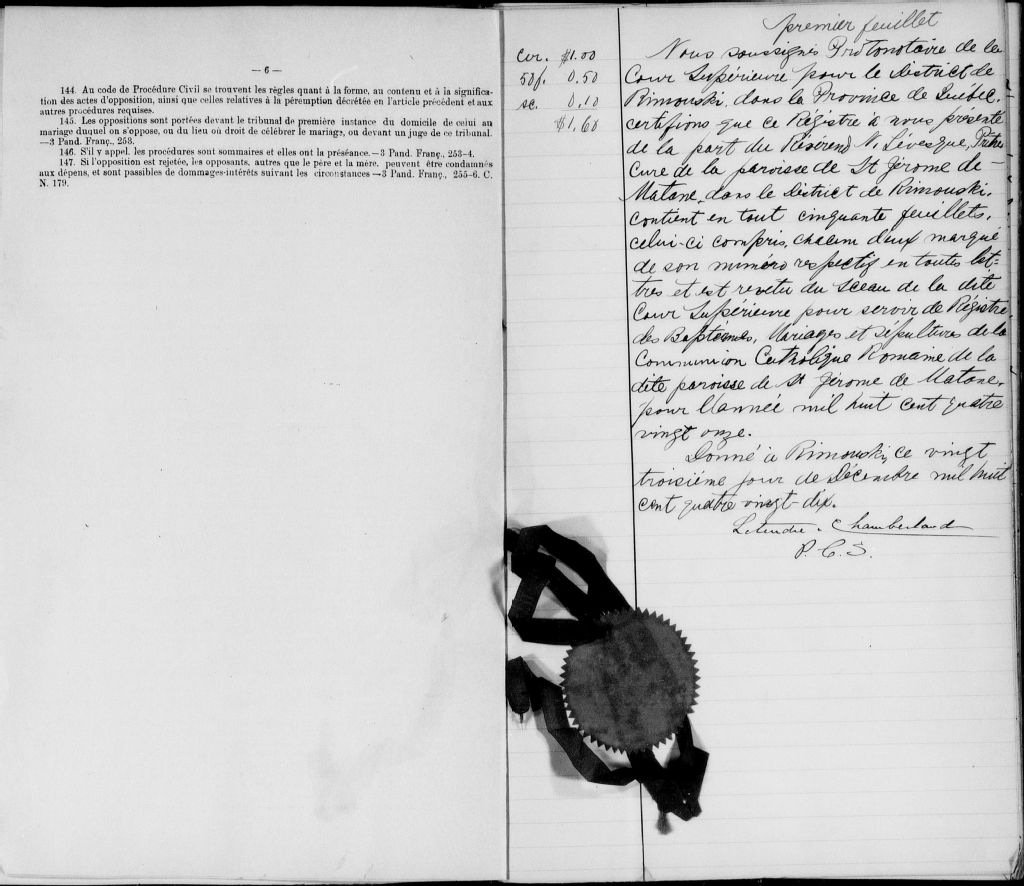 — 6 —
144. Au code de Procédure Civil se trouvent les règles quant à la forme, au contenu et à la significa-
tion des actes d'opposition, ainsi que celles relatives à la péremption décrétée en l'article précédent et aux
autres procédures requises.
145. Les oppositions sont portées devant le tribunal de première instance du domicile de celui au
mariage duquel on s'oppose, ou du lieu où droit de célébrer le mariage, ou devant un juge de ce tribunal.
—3 Pand. Franç., 253.
146. S'il y appel, les procédures sont sommaires et elles ont la préséance.—3 Pand. Franç., 253-4.
147. Si l'opposition est rejetée, les opposants, autres que le père et la mère, peuvent être condamnés
aux dépens, et sont passibles de dommages-intérêts suivant les circonstances—3 Pand. Franç., 255-6. C.
N. 179.
Cer. $1.00
50f. 0.50
sc. 0.10
$1.60
premier feuillet
Nous soussignés Protonotaire de la
Cour Supérieure pour le district de
Rimouski, dans la Province de Québec,
certifions que ce Régistre à nous présenté
de la part du Révérend N. Lévesque, Prêtre
Curé de la paroisse de St Jérome de
Matane, dans le District de Rimouski,
contient en tout cinquante feuillets,
celui-ci compris, chacun d'eux marqué
de son numéro respectif en toutes let-
tres et est revetu du Sceau de la dite
Cour Supérieure pour servir de Régistre
des Baptemes, Mariages et Sépultures de la
Communion Catholique Romaine de la
dite paroisse de St Jérome de Matane,
pour l'année mil huit cent quatre
vingt onze.
Donné à Rimouski, ce vingt
troisième jour de Décembre mil huit
cent quatre vingt-dix.
Letendre & Chamberland
P. C. S.